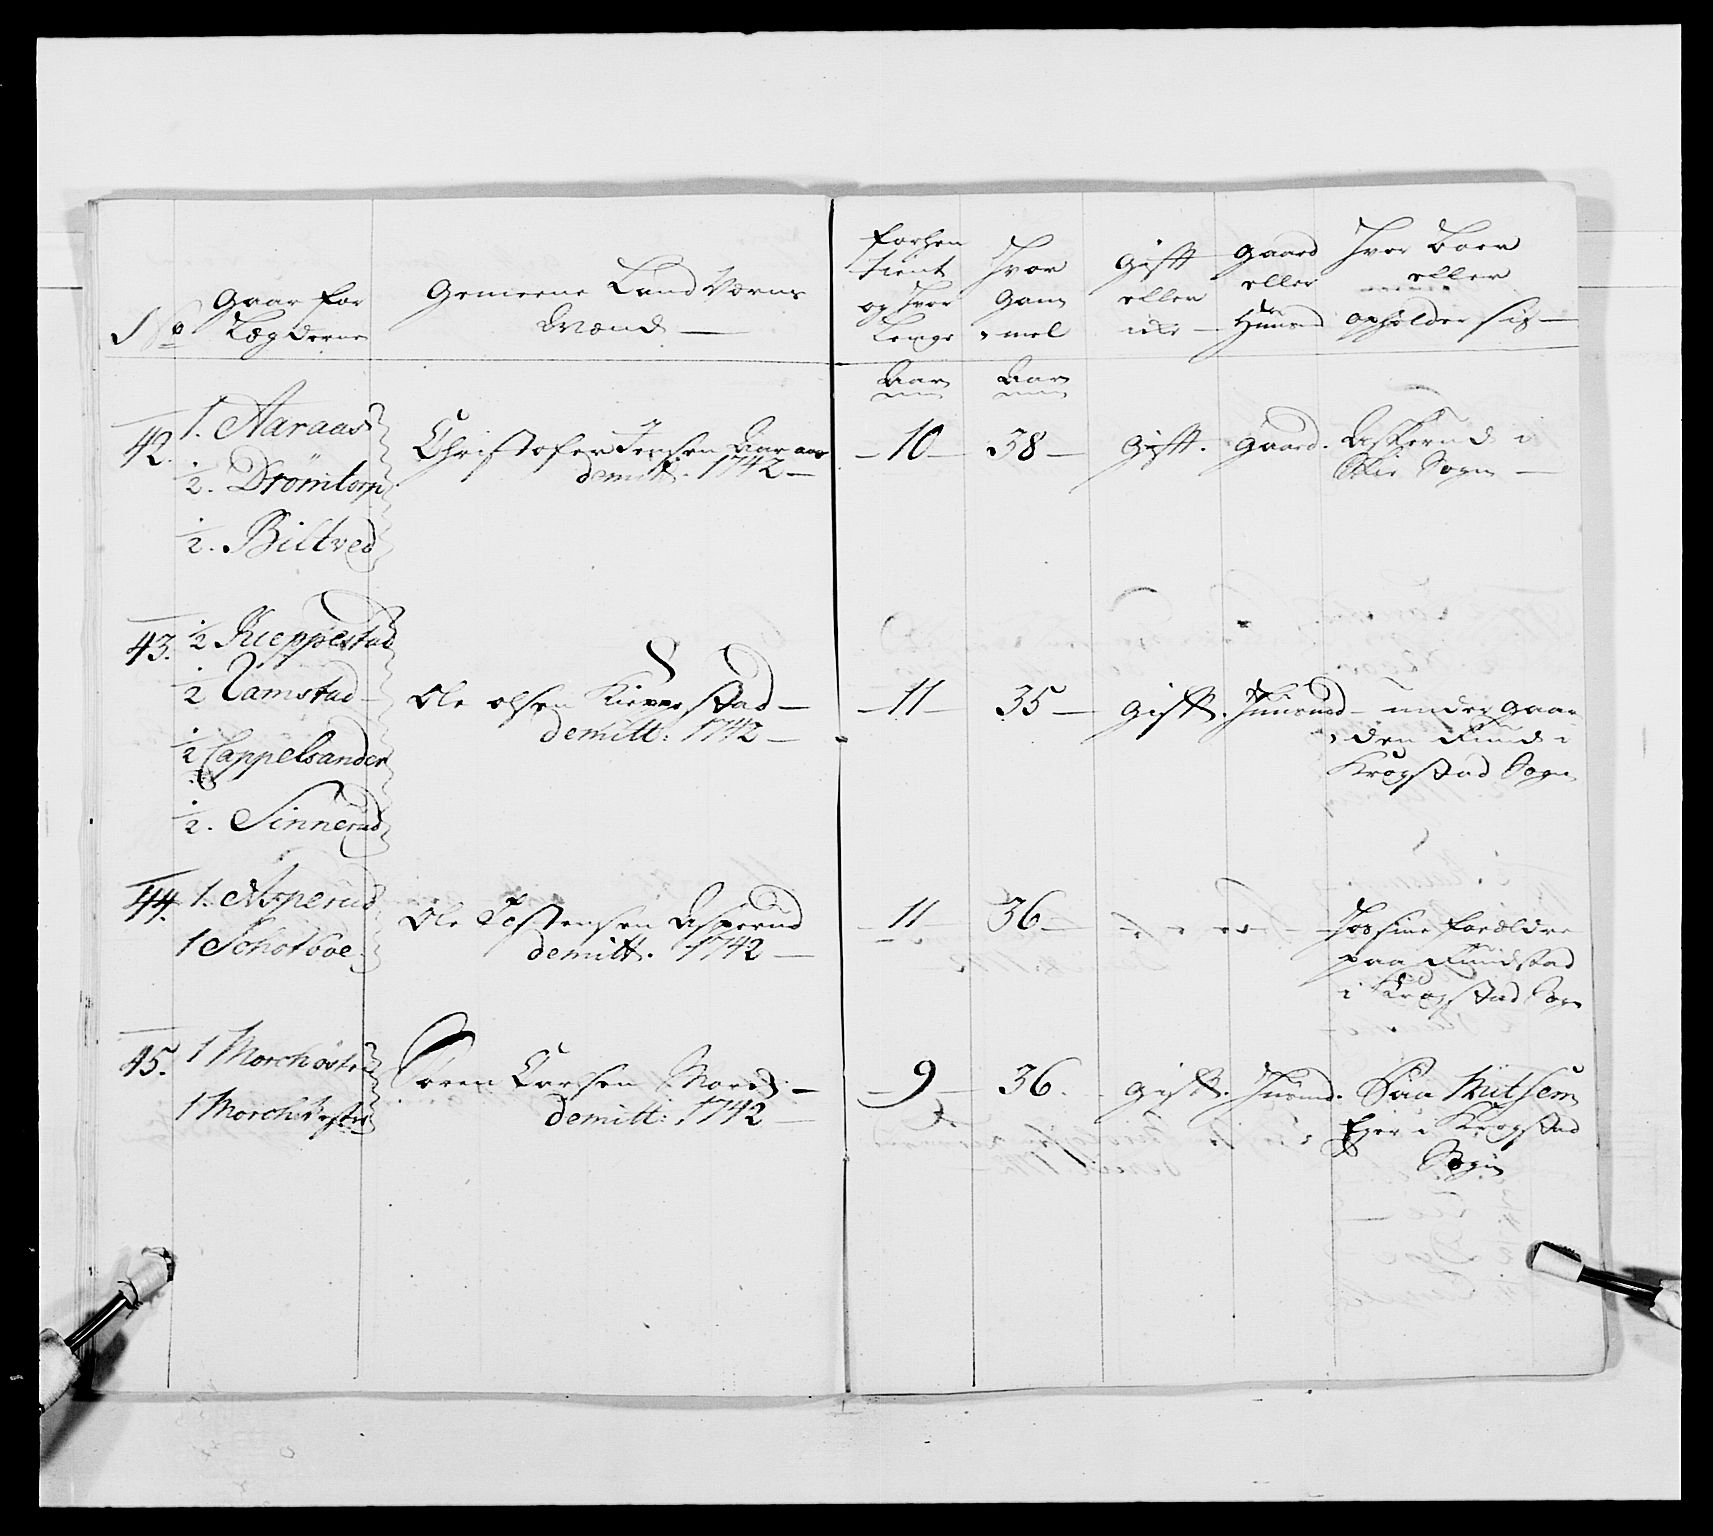 No
Gaar for
Lægderne
Gemeene Land Værns
Mænd —
forhen
tient
og hvor
Lenge
Hvor
Gam
mel
Gift
eller
ike —
Gaard
eller
Huusmd
Hvor Boer
eller
opholder sig —
Aar
Aar
42.
1. Aaraas
½. Drömtorp
½. Biltved
Christofer Jensen Aaraas
demitt. 1742 —
— 10 —
38 —
Gift.
Gaard.
i
Sogn —
43.
½ Kieppestad
½ Ramstad
½ Cappelsander
½. Sinnerud
Ole Olsen Kiepestad —
demitt: 1742 —
— 11 —
35 —
Gift.
Huusmd
— under gaar
den Finn i
Krogstad Sogn
44.
1. Asperud
1 Schotboe
Ole Tostensen Asperud
demitt. 1742 —
— 11 —
36 —
Hos sine forældre
paa Finnstad
i Krogstad Sogn
45.
1 Morch östre
1 Morch Vestre
Soren Larsen Morch —
demitt: 1742 —
— 9 —
36.
Gift.
Huusmd.
Paa Mitsem
Eger i Krogstad
Sogn